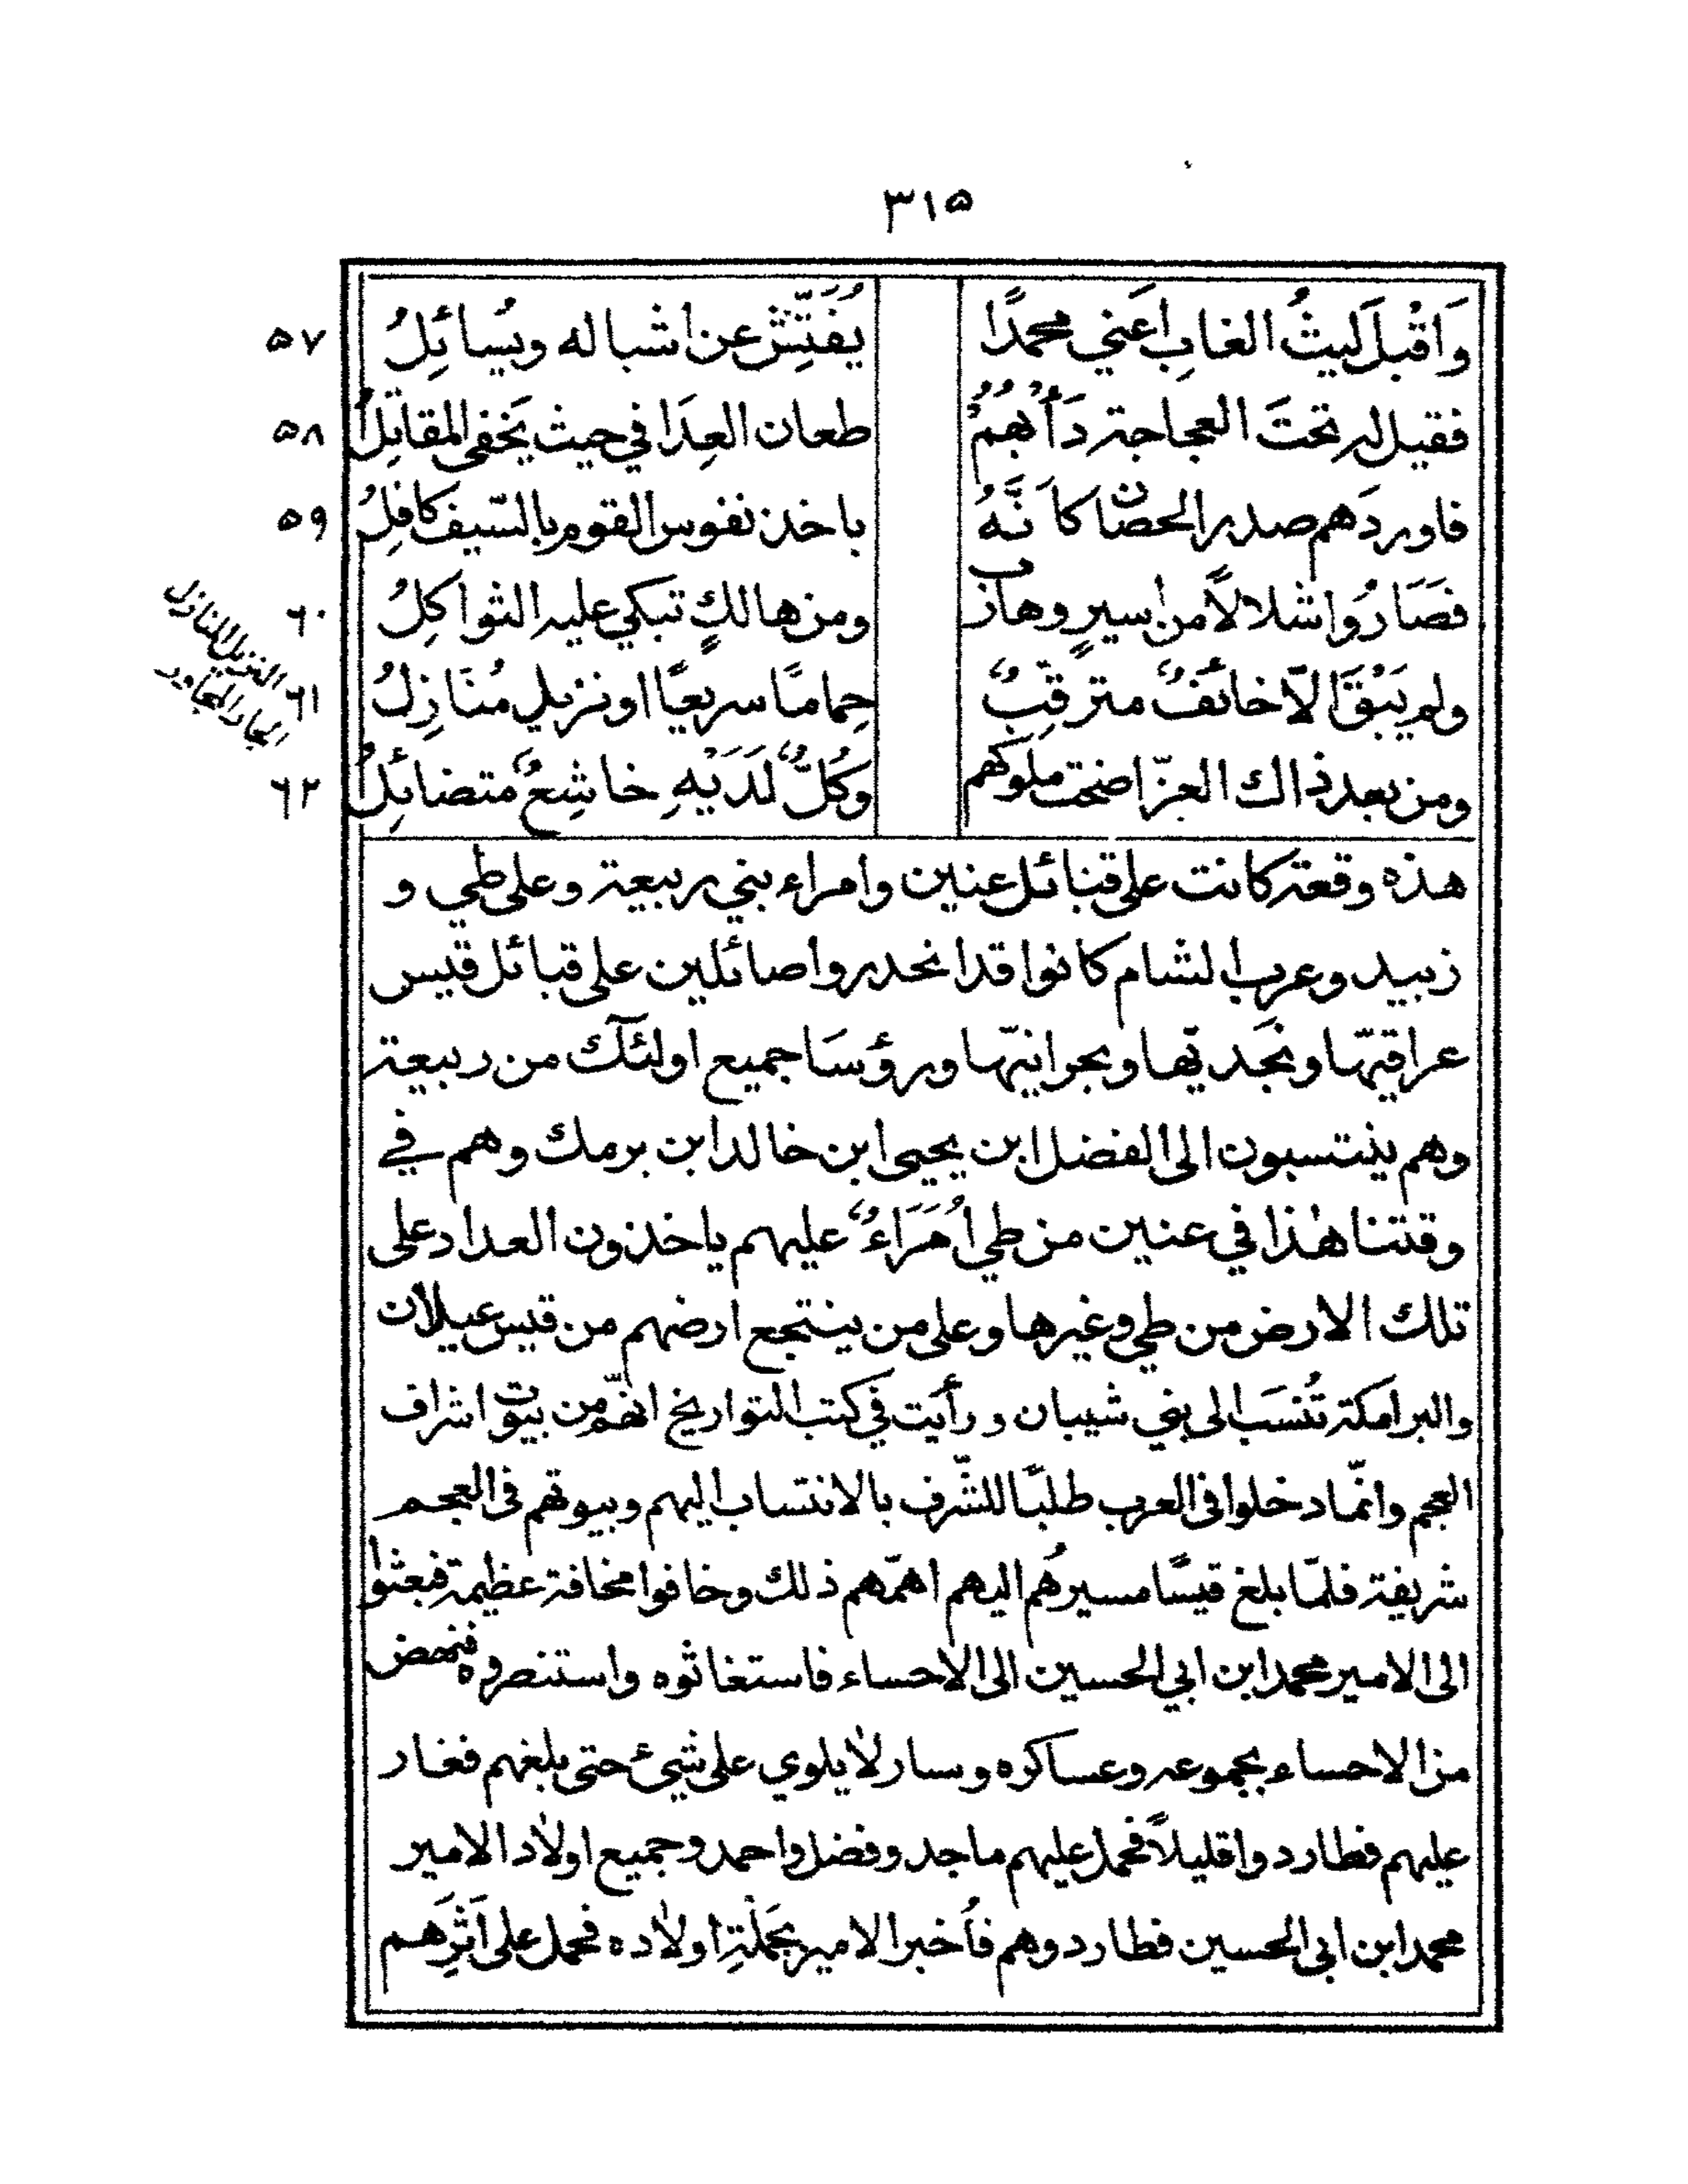 ٣١٥
وَاَقْبلَ لَيثُ الغابِ اَعني محمدًا يُفَتِّشُ عن اشباله ويُسائِلُ ٥٧
فقيل له تحتَ العجاجة دَأْبُهُمُ طعان العِدَا في حيث يَخفى المقاتِلُ ٥٨
فاوردَهم صدر الحصان كاَنَّهُ باخذ نفوس القوم بالسّيف كافِلُ ٥٩
فَصَارُوا شلالاً من اسيرٍ وهاربٍ ومن هالكٍ تبكي عليه الثواكِلُ ٦٠
ولم يَبْقَ الاّ خائفٌ مترقِّبٌ حِمامًا سريعًا او نزيلٍ مُنَازِلُ ٦١
النزيل المنازل
الجار المجاور
ومن بعد ذاك العزّ اضحت ملوكهم وكُلٌّ لَدَيْهِ خاشِعٌ متضائِلُ ٦٢
هذه وقعة كانت على قبائل عنين وامراء بني ربيعة وعلى طي و
زبيد وعرب الشام كانوا قد انحدروا صائلين على قبائل قيس
عراقيّها ونجَديّها وبحرانيّها ورؤسَا جميع اولئك من ربيعة
وهم ينتسبون الى الفضل ابن يحيى ابن خالد ابن برمك وهم في
وقتنا هٰذا في عنين من طي اُمَرَاءٌ عليهم ياخذون العداد على
تلك الارض من طي وغيرها وعلى من ينتجع ارضهم من قيس عيلان
والبرامكة تُنسَب الى بني شيبان ورأيت في كتب التواريخ انهّم من بيوت اشراف
العجم وانّما دخلوا في العرب طلبًا للشّرف بالانتساب اليهم وبيوتهم في العجم
شريفة فلمّا بلغ قيسًا مسيرهُم اليهم اهمّهم ذلك وخافوا مخافة عظيمة فبعثوا
الى الامير محمد ابن ابي الحسين الى الاحساء فاستغاثوه واستنصروه فنهض
من الاحساء بجموعه وعساكره وسار لا يلوي على شيئ حتى بلغهم فغار
عليهم فطاردوا قليلاً فحمل عليهم ماجد وفضل واحمد وجميع اولاد الامير
محمد ابن ابي الحسين فطاردوهم فاُخبر الامير بحَملَةِ اولاده فحمل على اَثَرِهم